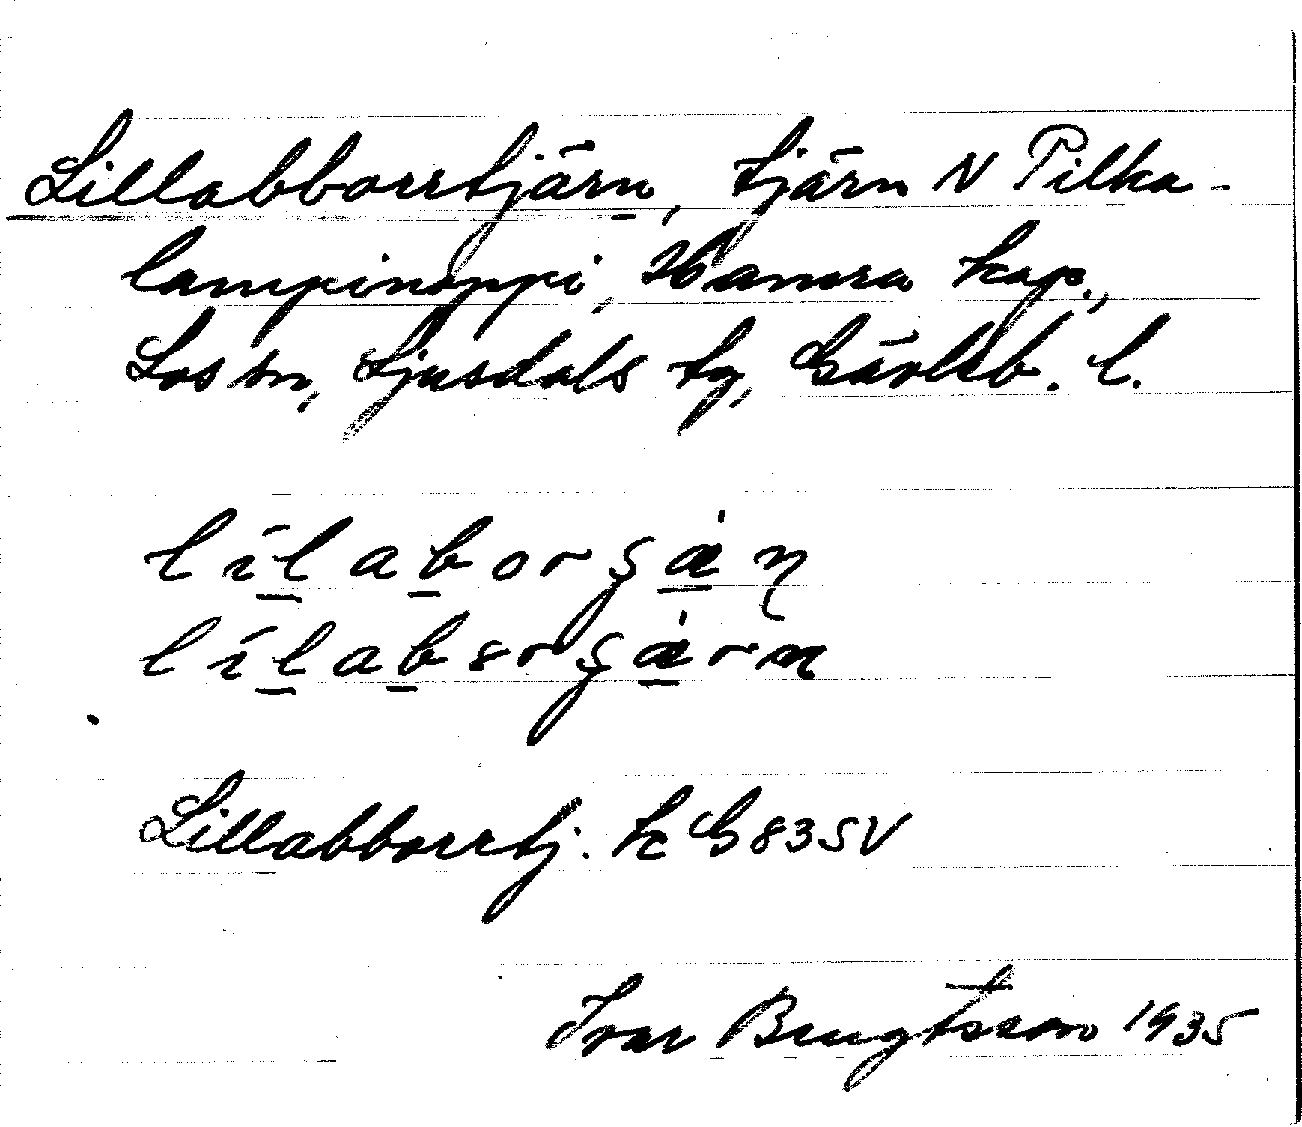 Lillabborrtjärn, tjärn N Pilka-
lampinoppi, Hamra kap.,
Los sn, Ljusdals tg, Gävleb. l.
lìlaborʂȧɳ
lìlabɞrʂȧrn
Lillabborrtj. K G 835V
Ivar Bengtsson 1935